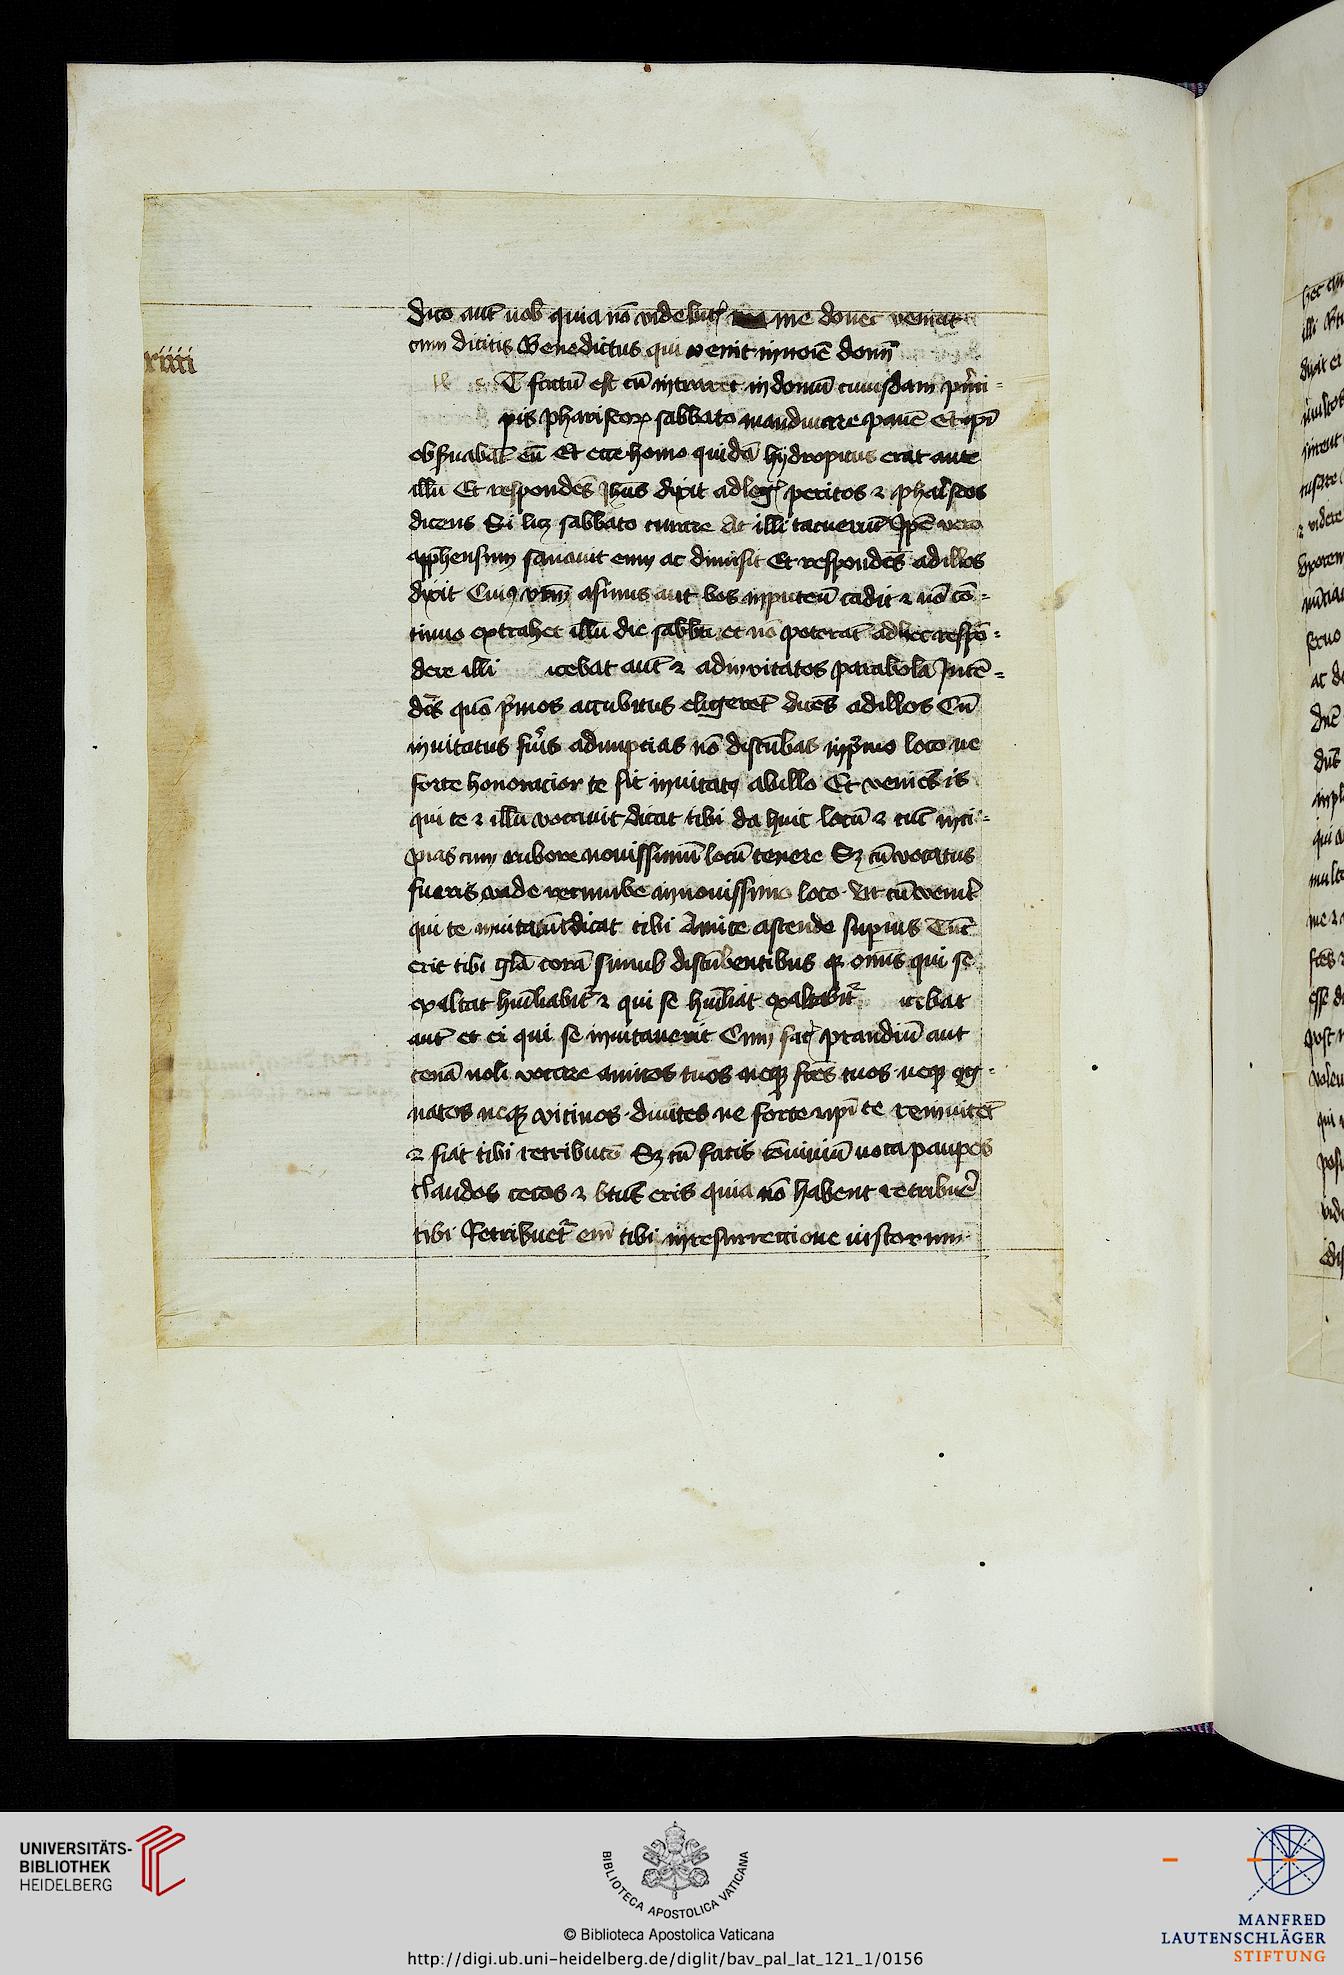 dico aut̄ uob̄ quia nō videbit᷒ me donec veniat
cum dicitis Benedictus qui venit in noīe domī
xiiii
T factū est cū intraret in domū cuiusdam prīnci=
pis phariseoꝝ sabbato manducare panē Et ip̄i
obẜuabāt eū Et ecce homo quidā hydropicus erat ante
illū Et respondēs Jhūs dixit ad leg᷒ peritos ⁊ phariseos
dicens Si licꝫ sabbato curare At illi tacuerūt Ip̄e vero
apprehensum sanauit eum ac dimisit Et respondēs ad illos
dixit Cuiꝯ vrm̄ asinus aut bos in puteū cadit ⁊ nō cō=
tinuo extrahet illū die sabbī et nō poterāt ad hec respō=
dere illi icebat aut̄ ⁊ ad inuitatos parabolā Intē=
dēs quō p̄mos accubitus eligerēt dicēs ad illos Cū
inuitatus fūis ad nuptias nō discūbas in p̄mo loco ne
forte honoracior te sit inuitatꝯ ab illo Et veniēs is
qui te ⁊ illū vocauit dicat tibi da huic locū ⁊ tūc inci=
pias cum rubore nouissimū locū tenere Sꝫ cū vocatus
fueris vade recumbe in nouissimo loco Vt cū venit̄
qui te inuitauit dicat tibi Amice ascende supius Tūc
erit tibi glā corā simul discūbentibus qꝫ omīs qui se
exaltat humiliabit᷒ ⁊ qui se humiliat exaltabit᷒ icebat
aut̄ et ei qui se inuitauerit Cum fac᷒ prandiū aut
cenā noli vocare amicos tuos neqꝫ frēs tuos neqꝫ cog=
natos neqꝫ vicinos diuites ne forte et ip̄i te reinuitēt
⁊ fiat tibi retributō Sꝫ cū facis cōuiuiū uoca paupes
claudos cecos ⁊ btūs eris quia nō habent retribuēr
tibi Retribuet᷒ em̄ tibi in resurrectione iustorum
UNIVERSITÄTS-
BIBLIOTHEK
HEIDELBERG
BIBLIOTECA APOSTOLICA VATICANA
© Biblioteca Apostolica Vaticana
http://digi.ub.uni-heidelberg.de/diglit/bav_pal_lat_121_1/0156
MANFRED
LAUTENSCHLÄGER
STIFTUNG